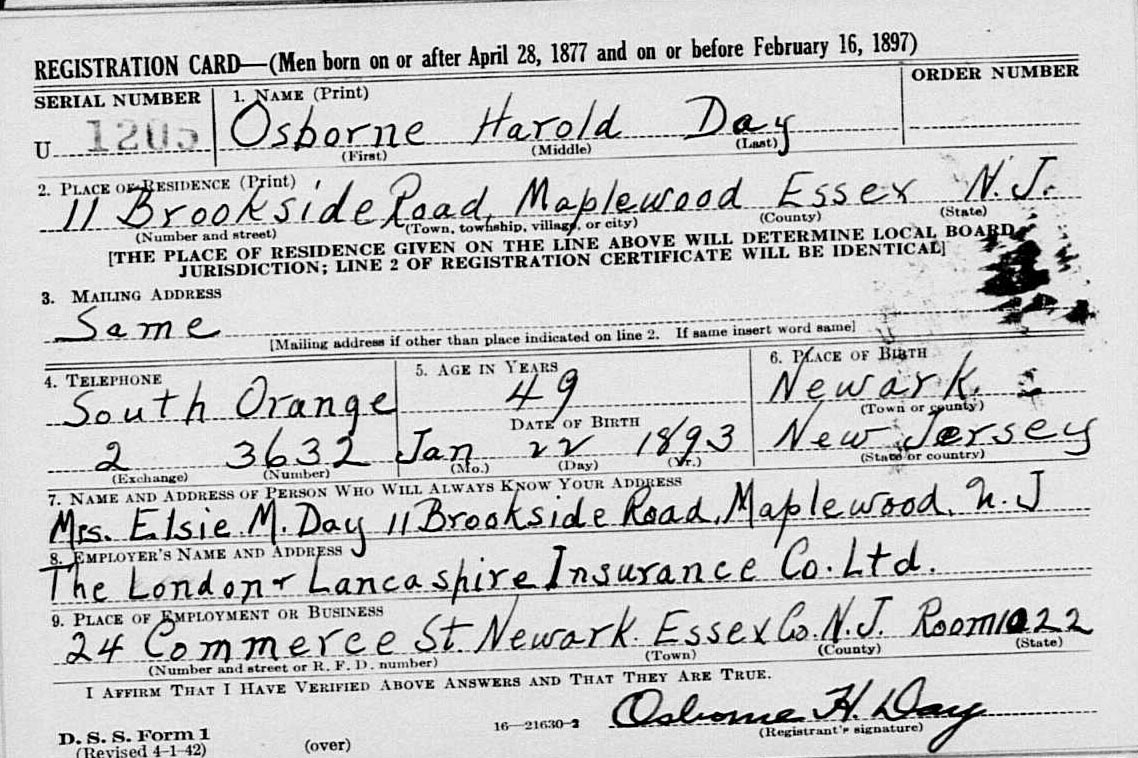 REGISTRATION CARD—(Men born on or after April 28, 1877 and on or before February 16, 1897)
SERIAL NUMBER 1. NAME (Print) ORDER NUMBER
U 1205 Osborne Harold Day
(First) (Middle) (Last)
2. PLACE OF RESIDENCE (Print)
11 Brookside Road, Maplewood Essex N.J.
(Number and street) (Town, township, village, or city) (County) (State)
[THE PLACE OF RESIDENCE GIVEN ON THE LINE ABOVE WILL DETERMINE LOCAL BOARD
JURISDICTION; LINE 2 OF REGISTRATION CERTIFICATE WILL BE IDENTICAL]
3. MAILING ADDRESS
Same
[Mailing address if other than place indicated on line 2. If same insert word same]
4. TELEPHONE 5. AGE IN YEARS 6. PLACE OF BIRTH
South Orange 49 Newark
(Town or county)
DATE OF BIRTH
2 3632 Jan 22 1893 New Jersey
(Exchange) (Number) (Mo.) (Day) (Yr.) (State or country)
7. NAME AND ADDRESS OF PERSON WHO WILL ALWAYS KNOW YOUR ADDRESS
Mrs. Elsie M. Day 11 Brookside Road, Maplewood, N.J
8. EMPLOYER'S NAME AND ADDRESS
The London + Lancashire Insurance Co. Ltd.
9. PLACE OF EMPLOYMENT OR BUSINESS
24 Commerce St. Newark. Essex Co. N.J. Room 1022
(Number and street or R. F. D. number) (Town) (County) (State)
I AFFIRM THAT I HAVE VERIFIED ABOVE ANSWERS AND THAT THEY ARE TRUE.
Osborne H. Day
(Registrant's signature)
D. S. S. Form 1 16—21630-2
(Revised 4-1-42) (over)